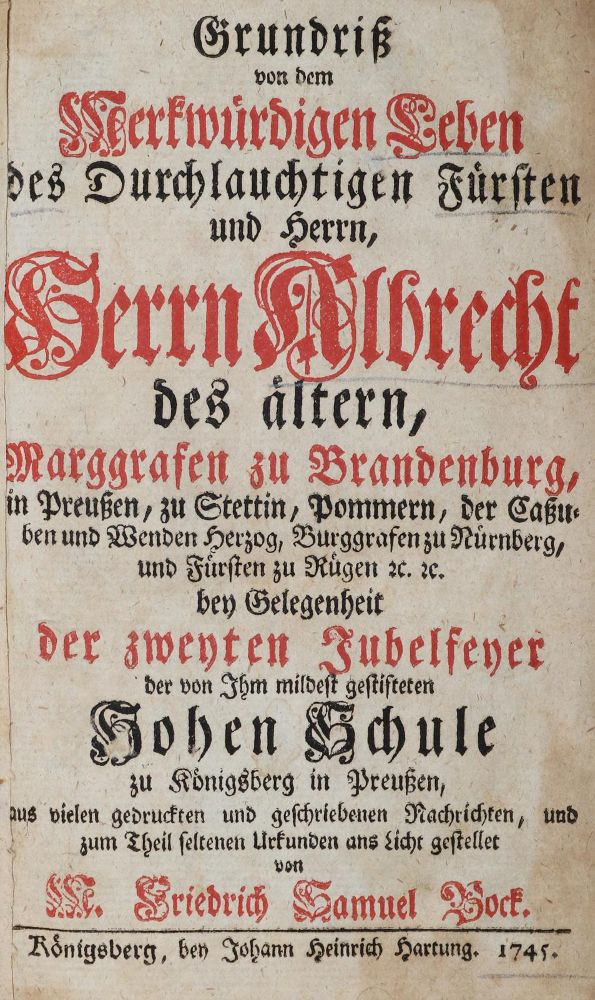 Grundriß
von dem
Merkwürdigen Leben
des Durchlauchtigen Fürsten
und Herrn,
Herrn Albrecht
des ältern,
Marggrafen zu Brandenburg,
in Preußen, zu Stettin, Pommern, der Caßu-
ben und Wenden Herzog, Burggrafen zu Nürnberg,
und Fürsten zu Rügen ꝛc. ꝛc.
bey Gelegenheit
der zweyten Jubelfeyer
der von Ihm mildest gestifteten
Hohen Schule
zu Königsberg in Preußen,
aus vielen gedruckten und geschriebenen Nachrichten, und
zum Theil seltenen Urkunden ans Licht gestellet
von
M. Friedrich Samuel Bock.
Königsberg, bey Johann Heinrich Hartung. 1745.